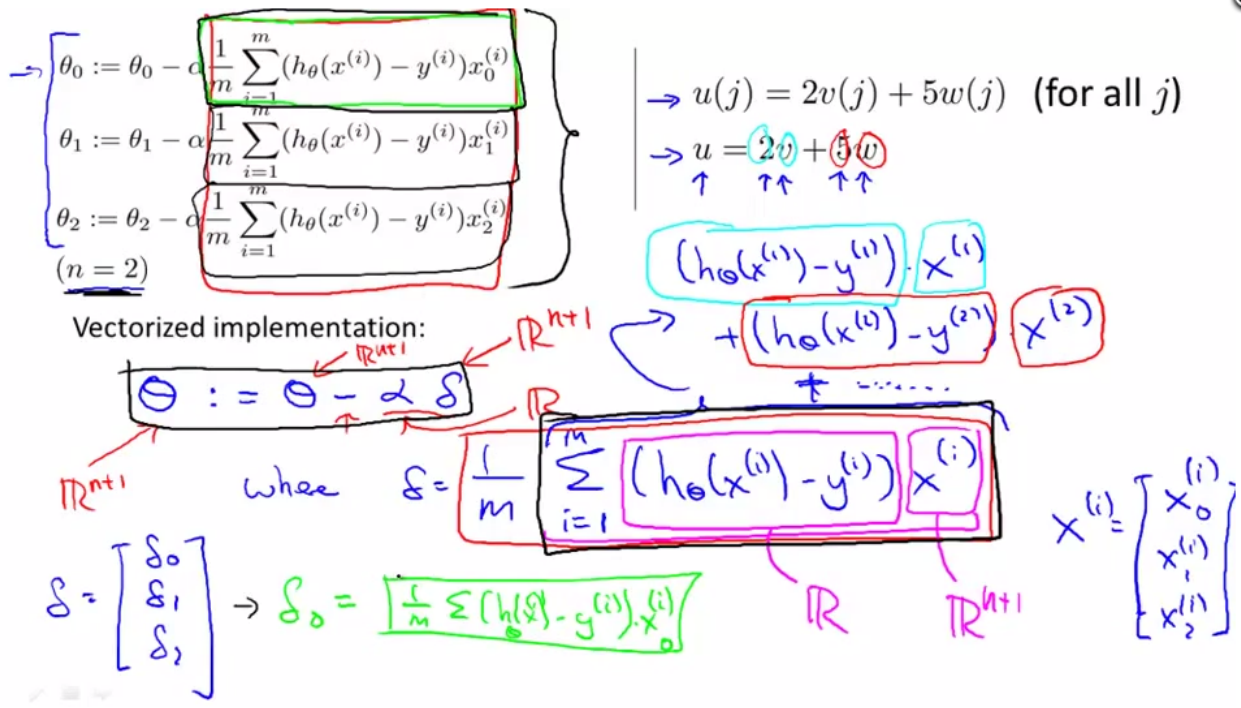 θ₀ := θ₀ − α (1/m) ∑_{i=1}^{m} (h_θ(x^{(i)}) − y^{(i)}) x_0^{(i)}
θ₁ := θ₁ − α (1/m) ∑_{i=1}^{m} (h_θ(x^{(i)}) − y^{(i)}) x_1^{(i)}
θ₂ := θ₂ − α (1/m) ∑_{i=1}^{m} (h_θ(x^{(i)}) − y^{(i)}) x_2^{(i)}
(n = 2)
→ u(j) = 2v(j) + 5w(j) (for all j)
→ u = 2v + 5w
↑ ↑↑ ↑↑
(h_θ(x^{(1)}) − y^{(1)}) · x^{(1)}
+ (h_θ(x^{(2)}) − y^{(2)}) · x^{(2)}
+ ........
Vectorized implementation:
ℝ^{n+1} ℝ^{n+1}
θ := θ − α δ
ℝ^{n+1} ℝ
where δ = (1/m) ∑_{i=1}^{m} (h_θ(x^{(i)}) − y^{(i)}) x^{(i)}
ℝ ℝ^{n+1}
x^{(i)} = [x_0^{(i)} x_1^{(i)} x_2^{(i)}]
δ = [δ₀ δ₁ δ₂] → δ₀ = (1/m) ∑ (h_θ(x^{(i)}) − y^{(i)}) · x_0^{(i)}